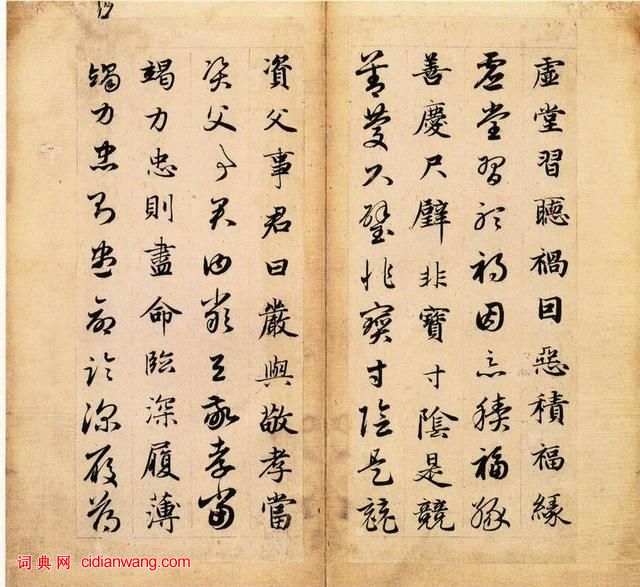 虛堂習聽禍因惡積福緣
虛堂習聽禍因惡積福緣
善慶尺璧非寶寸陰是競
善慶尺璧非寶寸陰是競
資父事君曰嚴與敬孝當
資父事君曰嚴與敬孝當
竭力忠則盡命臨深履薄
竭力忠則盡命臨深履薄
词典网 cidianwang.com